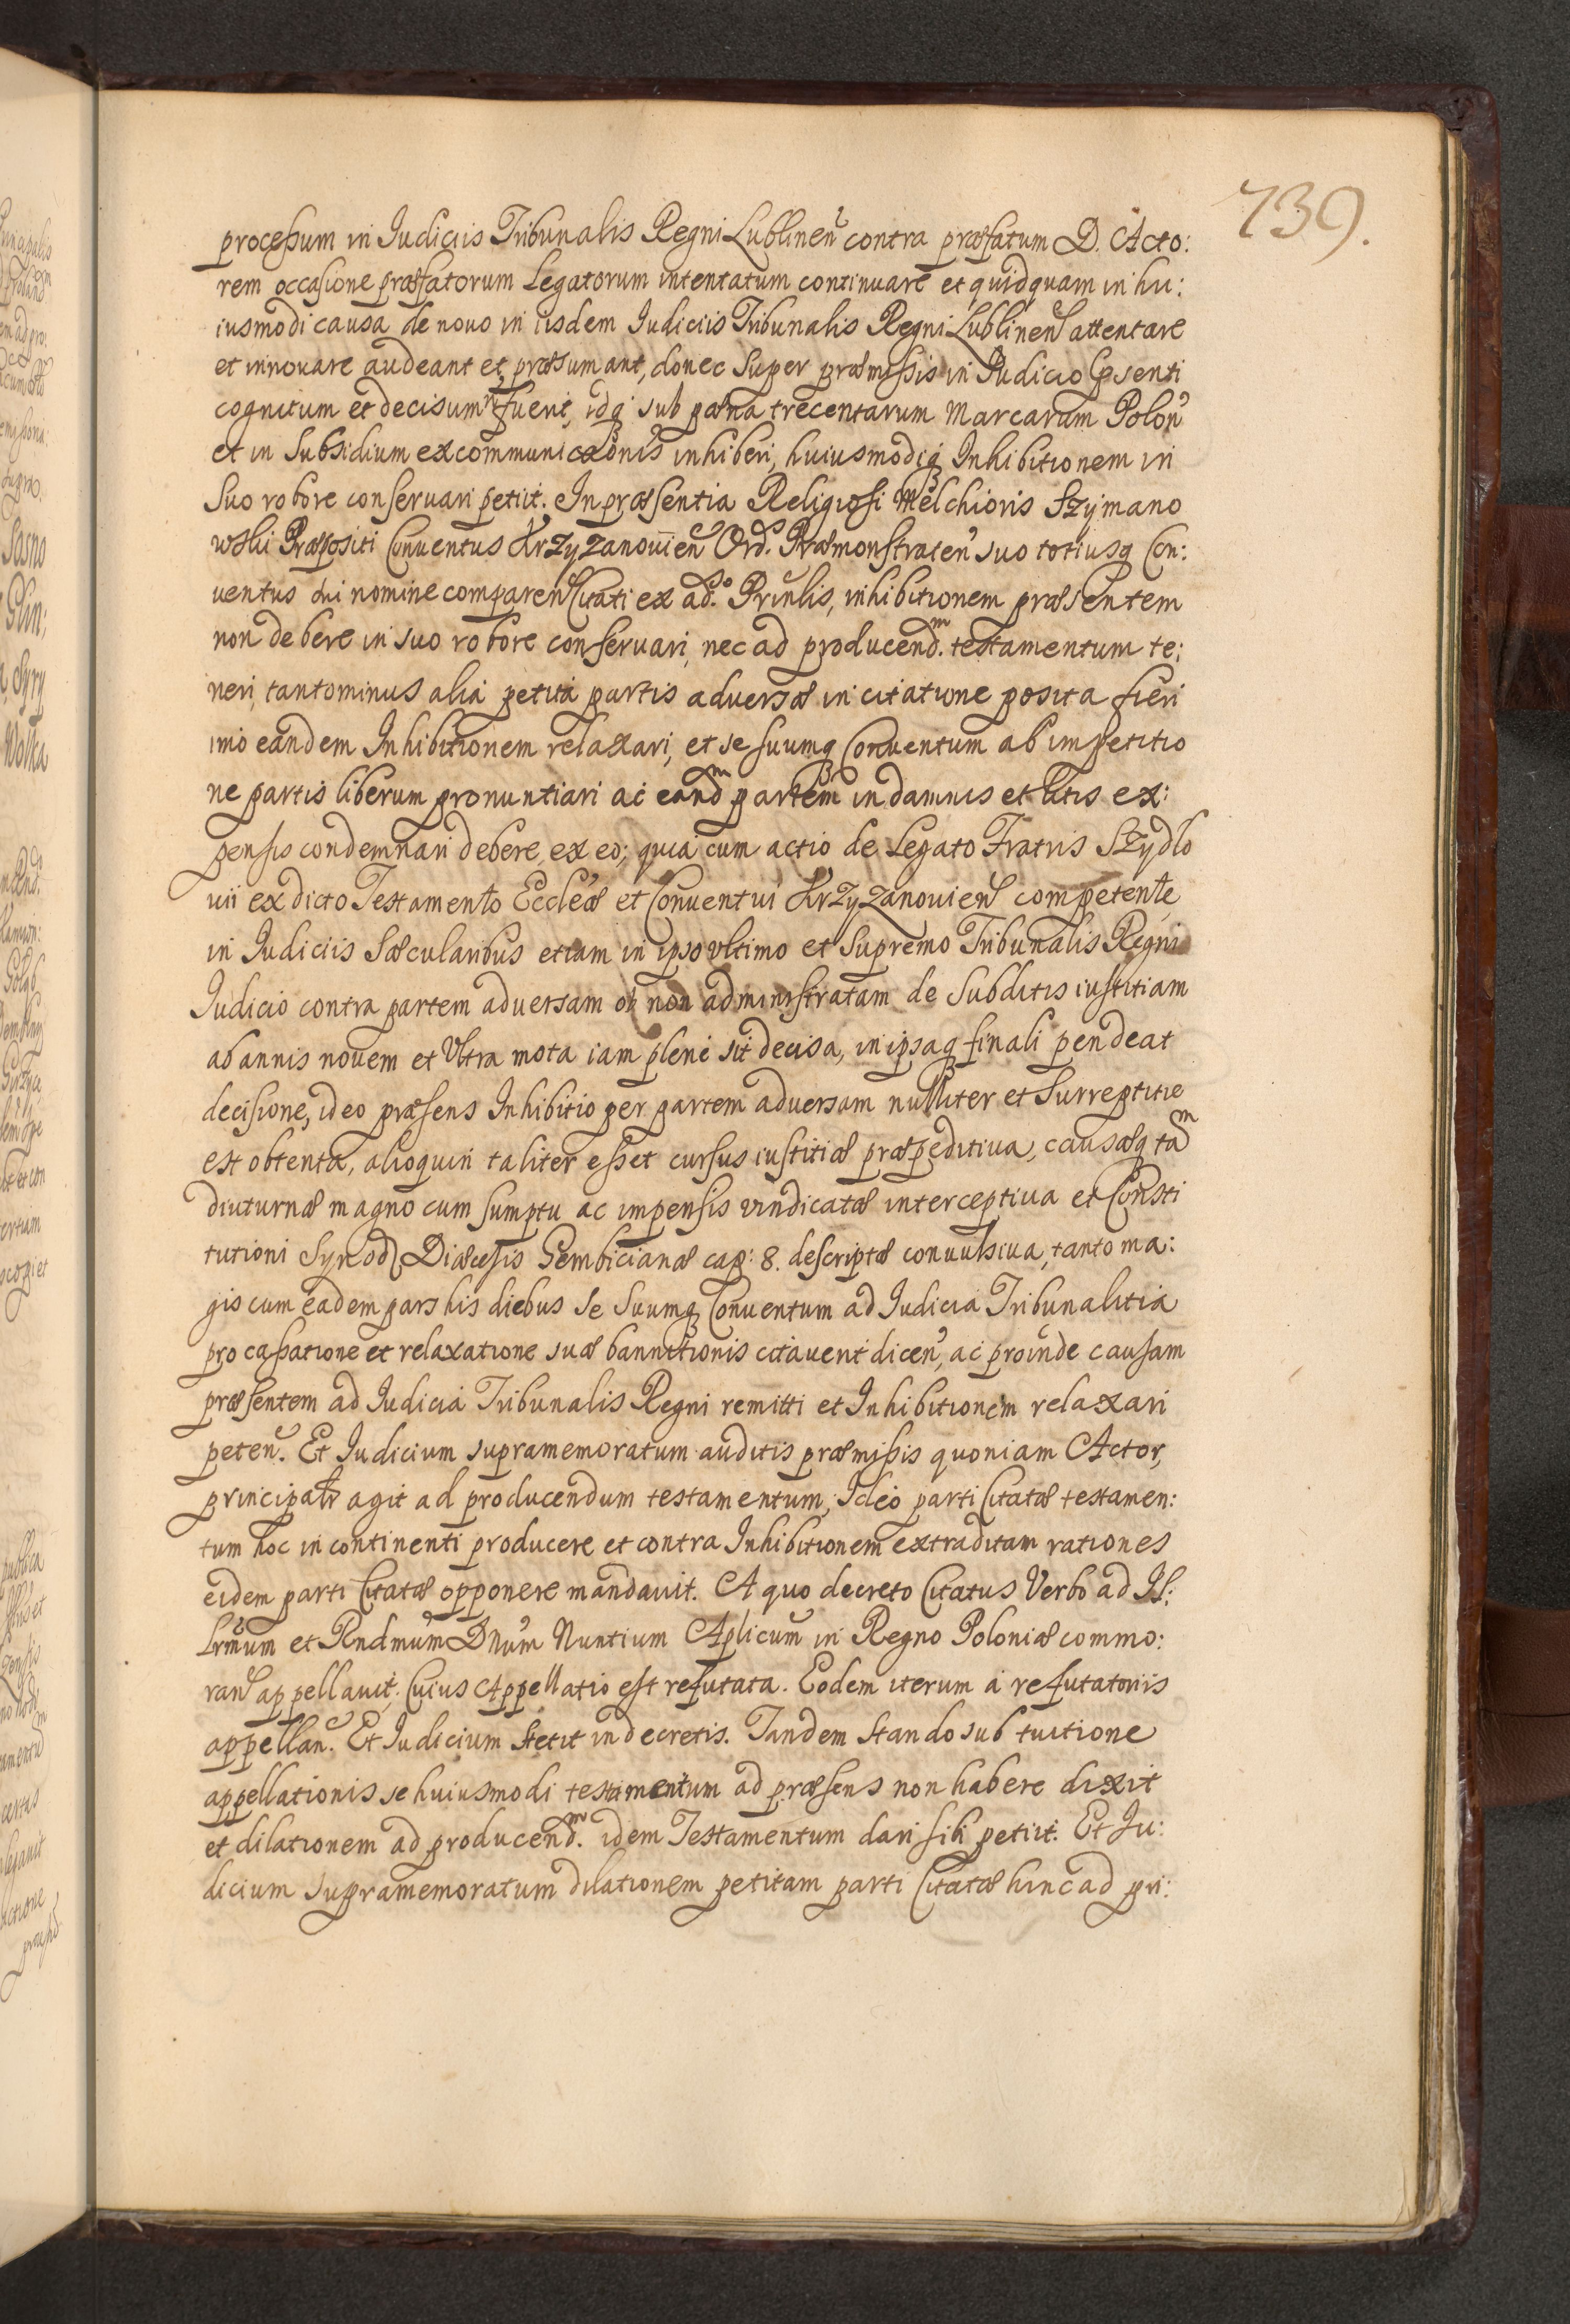 739.
processum in Judiciis Tribunalis Regni Lublinen contra præfatum D. Acto:
rem occasione præfatorum Legatorum intentatum continuare et quidquam in hu:
iusmodi causa de nouo in iisdem Judiciis Tribunalis Regni Lublinen attentare
et innouare audeant et præsumant, donec super præmissis in Judicio Psenti
cognitum et decisum fuerit, idq sub pæna trecentarum Marcarum Polon
et in Subsidium excommunicaonis inhiberi, huiusmodiq Inhibitionem in
Suo robore conseruari petiit. In præsentia Religiosi Melchioris Szymano
wski Præpositi Conuentus Krzyzanouien Ord. Præmonstraten suo totiusq Con:
uentus sui nomine comparen Citati ex ad.o Prinlis, inhibitionem præsentem
non debere in suo robore conseruari, nec ad producend.m testamentum te:
neri, tantominus alia petita partis aduersæ in citatione posita fieri
imo eandem Inhibitionem relaxari, et se suumq Conuentum ab impetitio
ne partis liberum pronuntiari ac eandm partem in damnis et litis ex:
pensis condemnari debere, ex eo; quia cum actio de Legato Fratris Szydlo
uii ex dicto Testamento Ecclæ et Conuentui Krzyzanouien competente
in Judiciis Sæcularibus etiam in ipso vltimo et Supremo Tribunalis Regni
Judicio contra partem aduersam ob non administratam de Subditis iustitiam
ab annis nouem et Vltra mota iam plene sit decisa, in ipsaq finali pendeat
decisione, ideo præsens Inhibitio per partem aduersam nulliter et Surreptitie
est obtenta, alioquin taliter esset cursus iustitiæ præpeditiua, causæq tam
diuturnæ magno cum sumptu ac impensis vindicatæ interceptiua et Consti
tutioni Synod Diæcesis Gembicianæ cap: 8. descriptæ conuulsiua, tanto ma:
gis cum eadem pars his diebus Se Suumq Conuentum ad Judicia Tribunalitia
pro cassatione et relaxatione suæ bannitionis citauerit dicen, ac proinde causam
præsentem ad Judicia Tribunalis Regni remitti et Inhibitionem relaxari
peten. Et Judicium supramemoratum auditis præmissis quoniam Actor,
principalr agit ad producendum testamentum, Ideo parti Citatæ testamen:
tum hoc in continenti producere et contra Inhibitionem extraditam rationes
eidem parti Citatæ opponere mandauit. A quo decreto Citatus Verbo ad Il:
Lrmum et Rndmum Dnum Nuntium Aplicum in Regno Poloniæ commo:
ran appellauit. Cuius Appellatio est refutata. Eodem iterum a refutatoriis
appellan. Et Judicium stetit in decretis. Tandem stando sub tuitione
appellationis se huiusmodi testamentum ad præsens non habere dixit
et dilationem ad producend.m idem Testamentum dari sibi petiit. Et Ju:
dicium supramemoratum dilationem petitam parti Citatæ hinc ad pri: